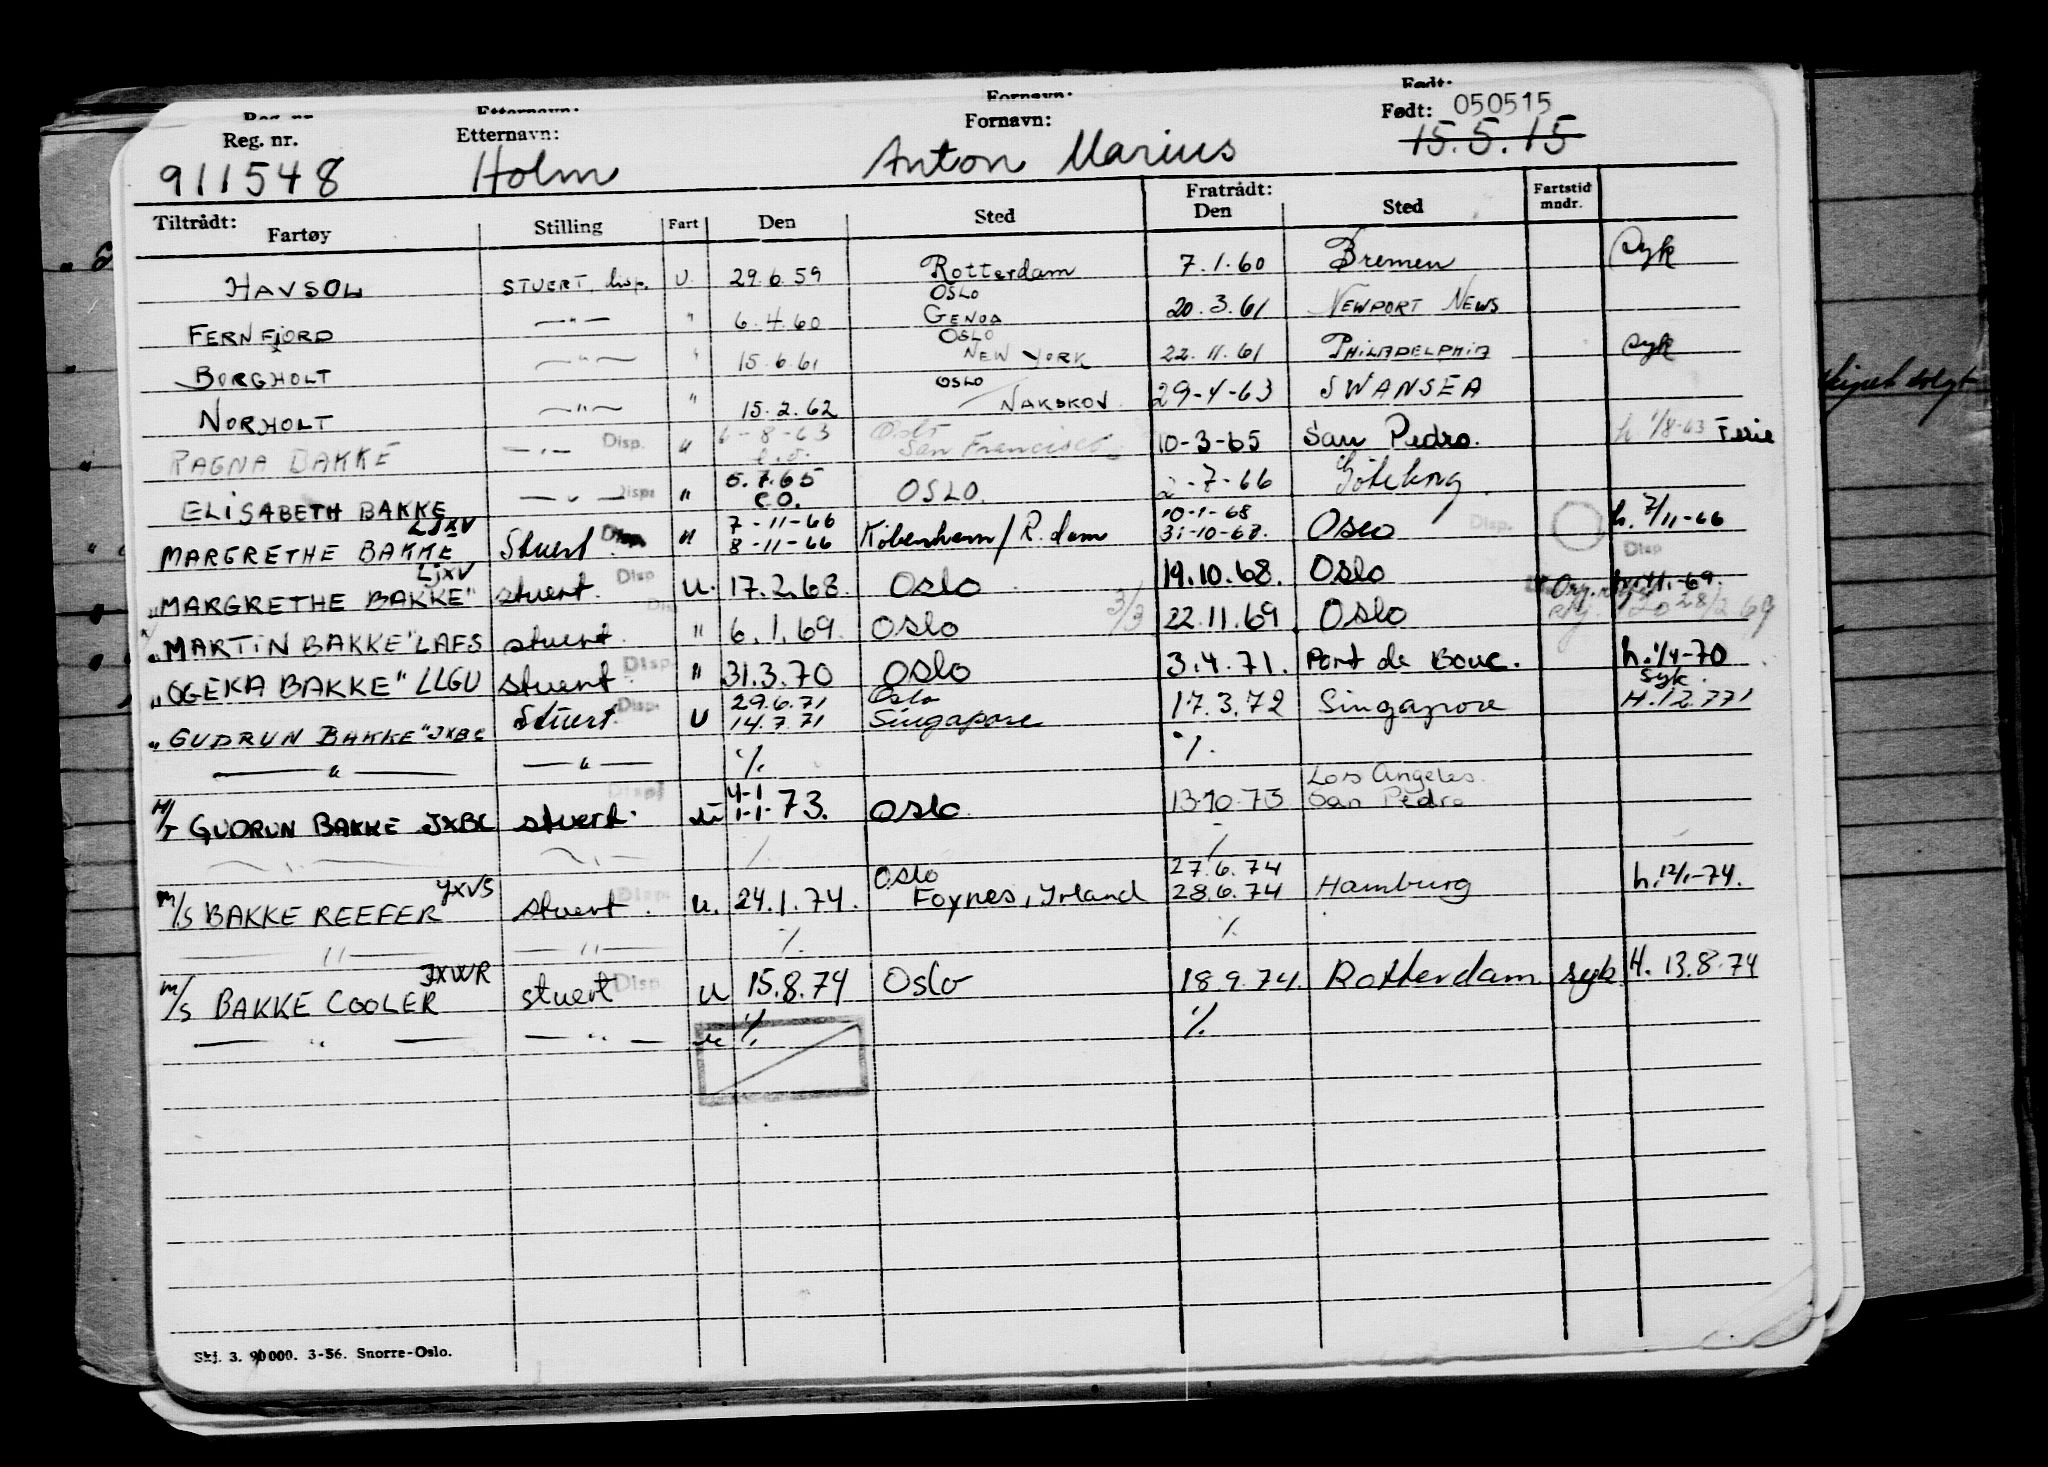 Reg. nr. Etternavn: Fornavn: Født: 050515
911548 Holm Anton Marius 15.5.15
Tiltrådt: Fratrådt:
Fartøy Stilling Fart Den Sted Den Sted Fartstid mndr.
HAVSOL STUERT, disp. U. 29.6.59 Rotterdam 7.1.60 Bremen Syk
OSLO
FERNFJORD —"— " 6.4.60 GENOA 20.3.61 NEWPORT NEWS
OSLO
BORGHOLT —"— " 15.6.61 NEW YORK 22.11.61 PHILADELPHIA Syk
OSLO
NORHOLT —"— " 15.2.62 / NAKSKOV 29-4-63 SWANSEA
RAGNA BAKKE —"— Disp. " 6-8-63 San Francisco 10-3-65 San Pedro. h. 1/8-63 Ferie
ELISABETH BAKKE —"— Disp. " 5.7.65 C.O. OSLO. 2-7-66 Göteborg.
LJXV 7-11-66 10-1-68
MARGRETHE BAKKE Stuert Disp. " 8-11-66 København/R.dam 31-10-68. Oslo Disp. h. 7/11-66
LJXV Disp
"MARGRETHE BAKKE" stuert. Disp u. 17.2.68 Oslo 19.10.68. Oslo
"MARTIN BAKKE" LAFS stuert. Disp " 6.1.69. Oslo 3/3 22.11.69 Oslo 28/2 69
"OGEKA BAKKE" LLGU stuert Disp " 31.3.70 Oslo 3.4.71. Port de Bouc. h. 1/4-70
29.6.71 Oslo syk.
"GUDRUN BAKKE" JXBC Stuert. Disp. U 14.7.71 Singapore 17.3.72 Singapore H.12.771
—"— —"— ./. ./.
4-1 Los Angeles.
M/T GUDRUN BAKKE JXBC stuert. Disp u 1-1-73. Oslo 13.10.73 San Pedro
—"— —"— ./. ./.
JXVS Oslo 27.6.74
m/s BAKKE REEFER stuert. Disp. u. 24.1.74. Foynes, Irland 28.6.74 Hamburg h.12/1-74.
—"— —"— ./. ./.
JXWR
m/s BAKKE COOLER stuert Disp u 15.8.74 Oslo 18.9.74. Rotterdam syk H. 13.8.74
—"— —"— u ./. ./.
Skj. 3. 90000. 3-56. Snorre-Oslo.